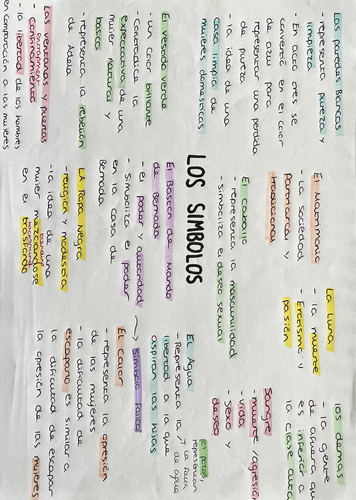 Las paredes Blancas
- representa pureza y
limpieza
- En acto tres se
convertió en el color
de azul para
representar una perdida
de pureza
- la idea de una
casa limpia de
mujeres domesticas
El vestido verde
- un color brillante
- contradice la
expectativa de una
mujer natural y
basica
- representa la rebelión
de Adela
Las ventanas y puertas
- confinamiento
- la libertad de los hombres
en comparación a las mujeres
El Matrimonio
- La sociedad
Patriarcal y
tradicional
El Caballo
- representa la masculinidad
- simboliza el deseo sexual
LOS SIMBOLOS
El Baston de Mando
de Bernada
- el poder / autoridad
- simboliza el poder
en la casa de
Bernada
→ Simbolo falico
LA Ropa Negra
- religion y modestia
- la idea de una
mujer mezclandose
en el trasfondo
La Luna
- la muerte
- Erotismo y
pasión
los demas
- la gente
de afuera que
es inferior a
la clase alta
Sangre
- muerte / agresión
- vida
- sexo y
deseo
El Agua
- Representa la
libertad a la que
aspiran las hijas
los pozos/
representan
la falta
de agua
El Calor
- representa la opresión
de las mujeres
- la dificultad de
escaparlo es similar a
la dificultad de escapar
la opresión de las mujeres